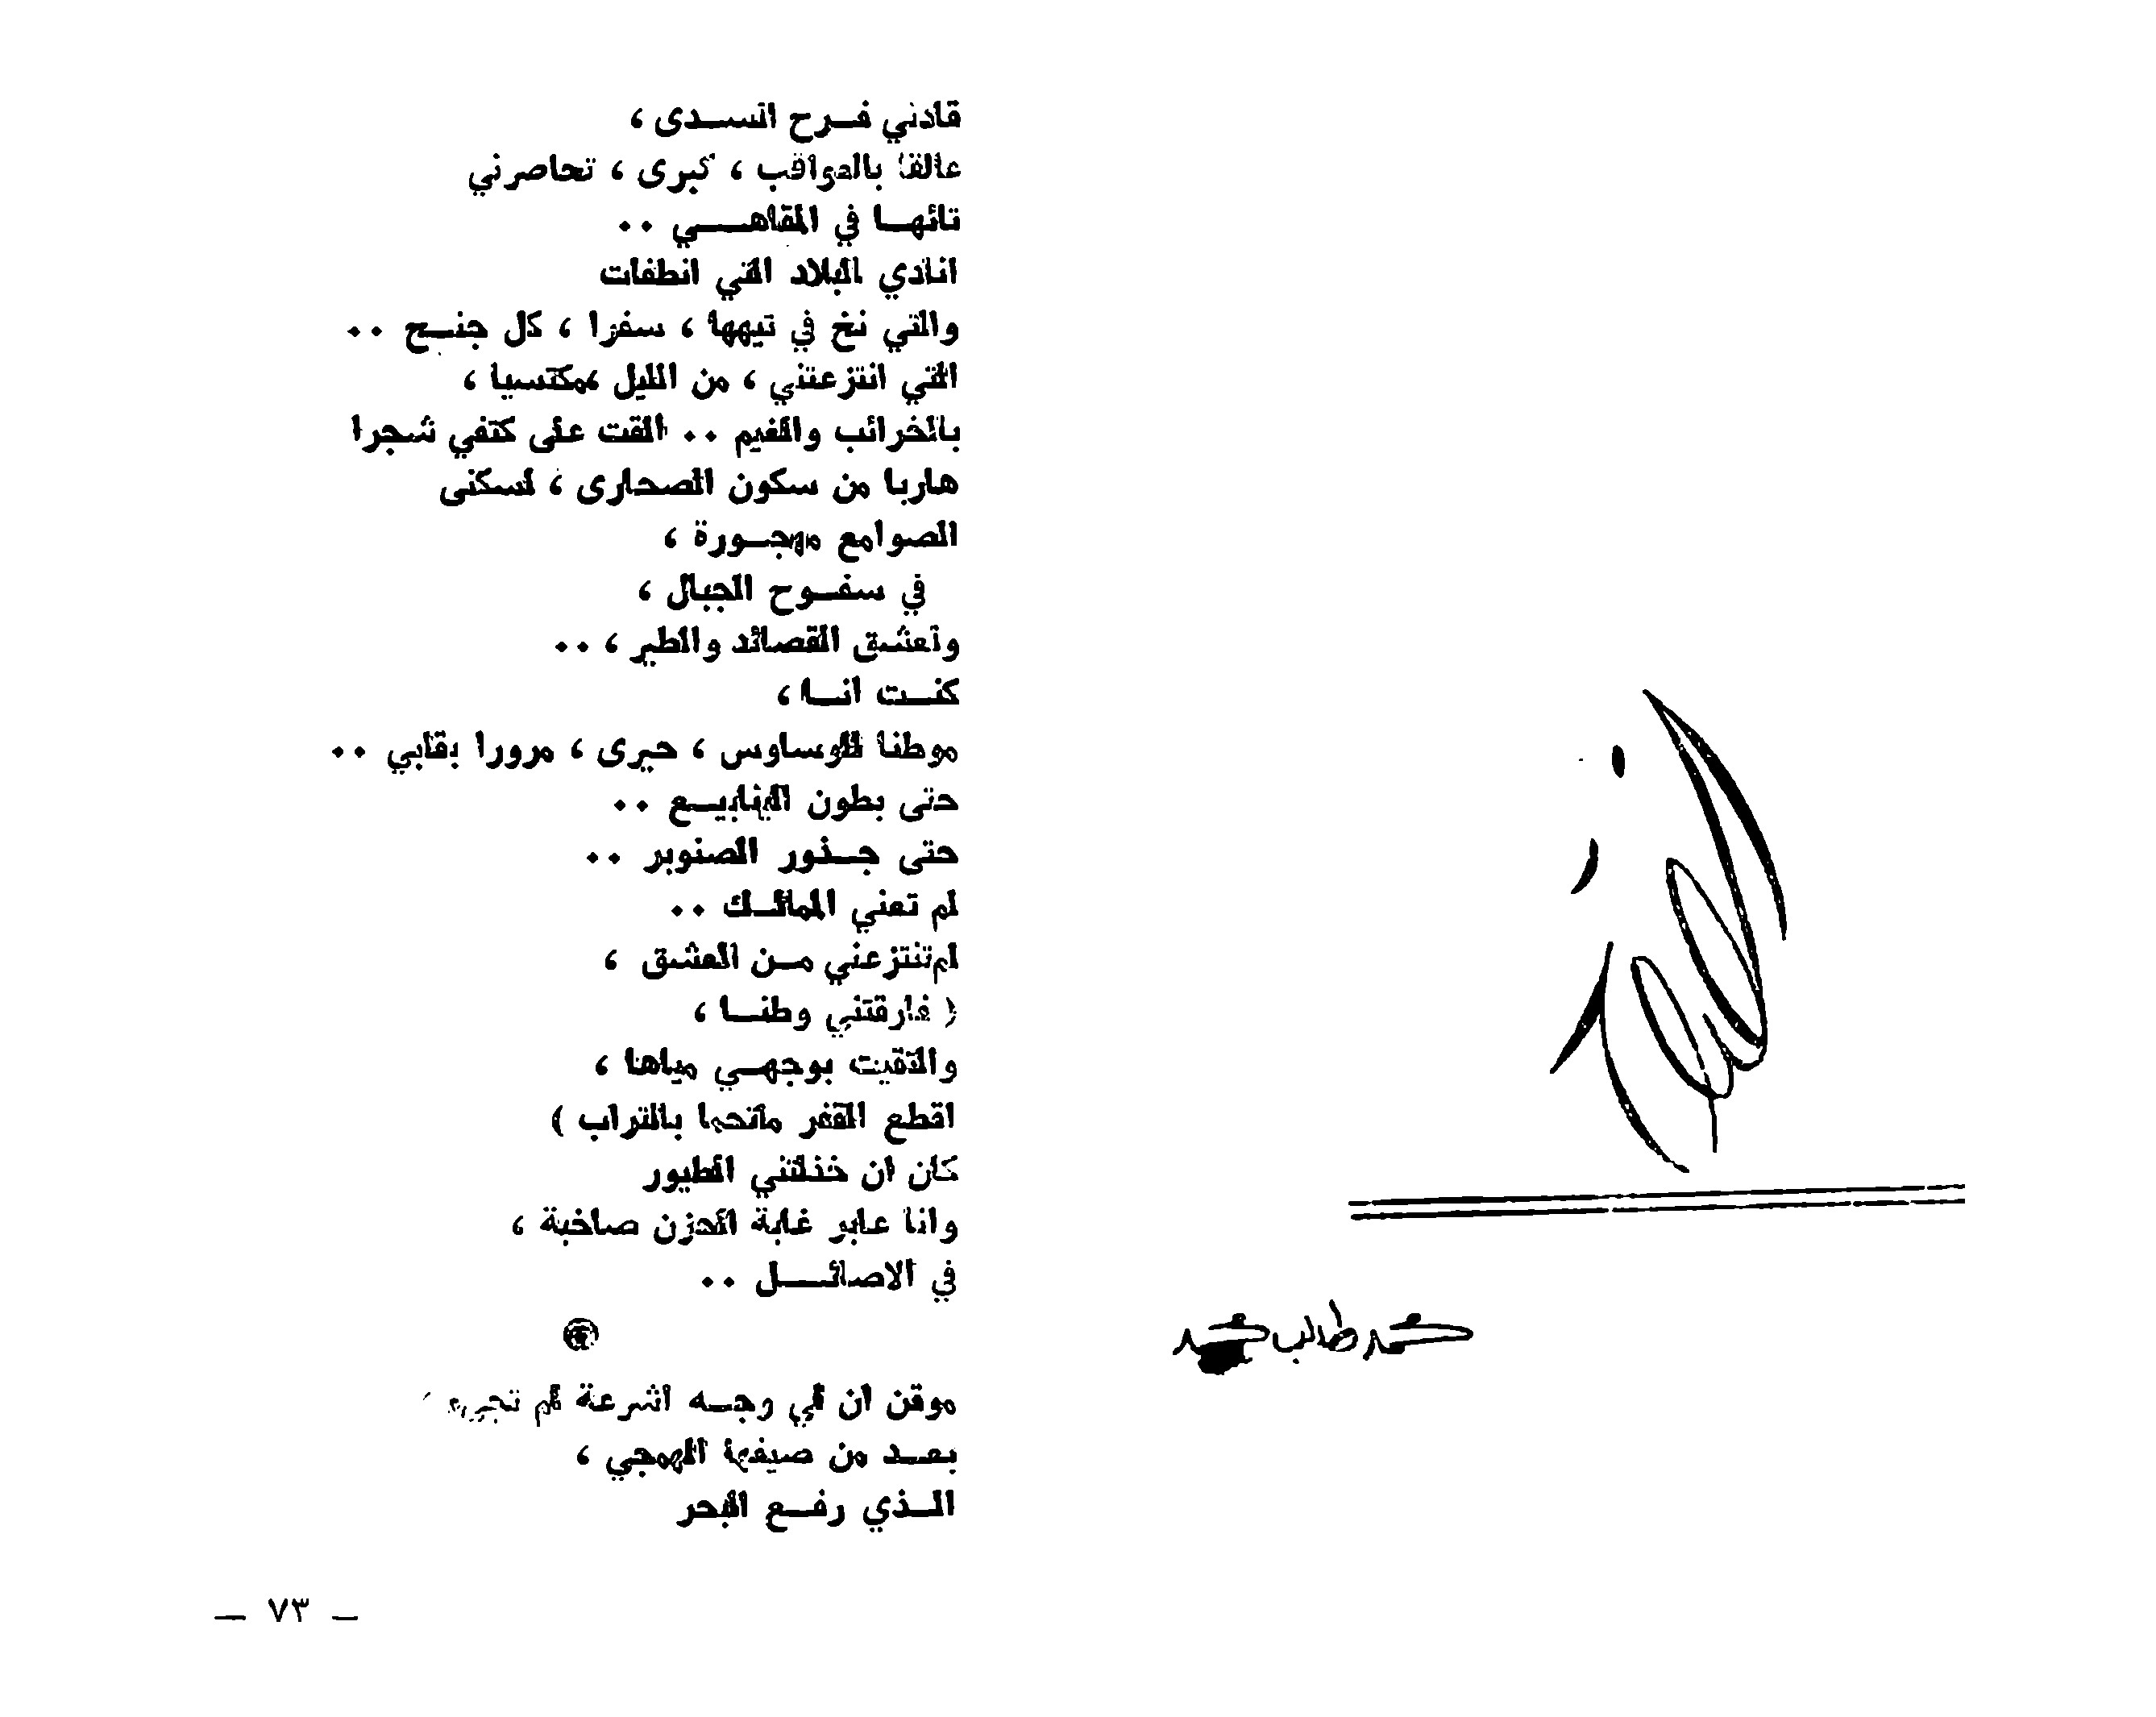 محمد طالب محمد
قادني فرح السدى ،
عالقا بالعواقب ، كبرى ، تحاصرني
تائها في المقاهي ..
انادي البلاد التي انطفات
والتي نخ في تيهها ، سفرا ، كل جنح ..
التي انتزعتني ، من الليل ،مكتسيا ،
بالخرائب والغيم .. القت على كتفي شجرا
هاربا من سكون الصحارى ، لسكنى
الصوامع مهجورة ،
في سفوح الجبال ،
وتعشق القصائد والطير ، ..
كنت انا ،
موطنا للوساوس ، حيرى ، مرورا بقلبي ..
حتى بطون الينابيع ..
حتى جذور الصنوبر ..
لم تعني الممالك ..
لم تنتزعني من العشق ،
( فارقتني وطنا ،
والتقيت بوجهي مياها ،
اقطع القفر ملتحما بالتراب )
كان ان خذلتني الطيور
وانا عابر غابة الحزن صاخبة ،
في الاصائل ..
موقن ان لي وجه اشرعة لم
بعد من صيفها الهمجي ،
الذي رفع البحر
— ٧٣ —